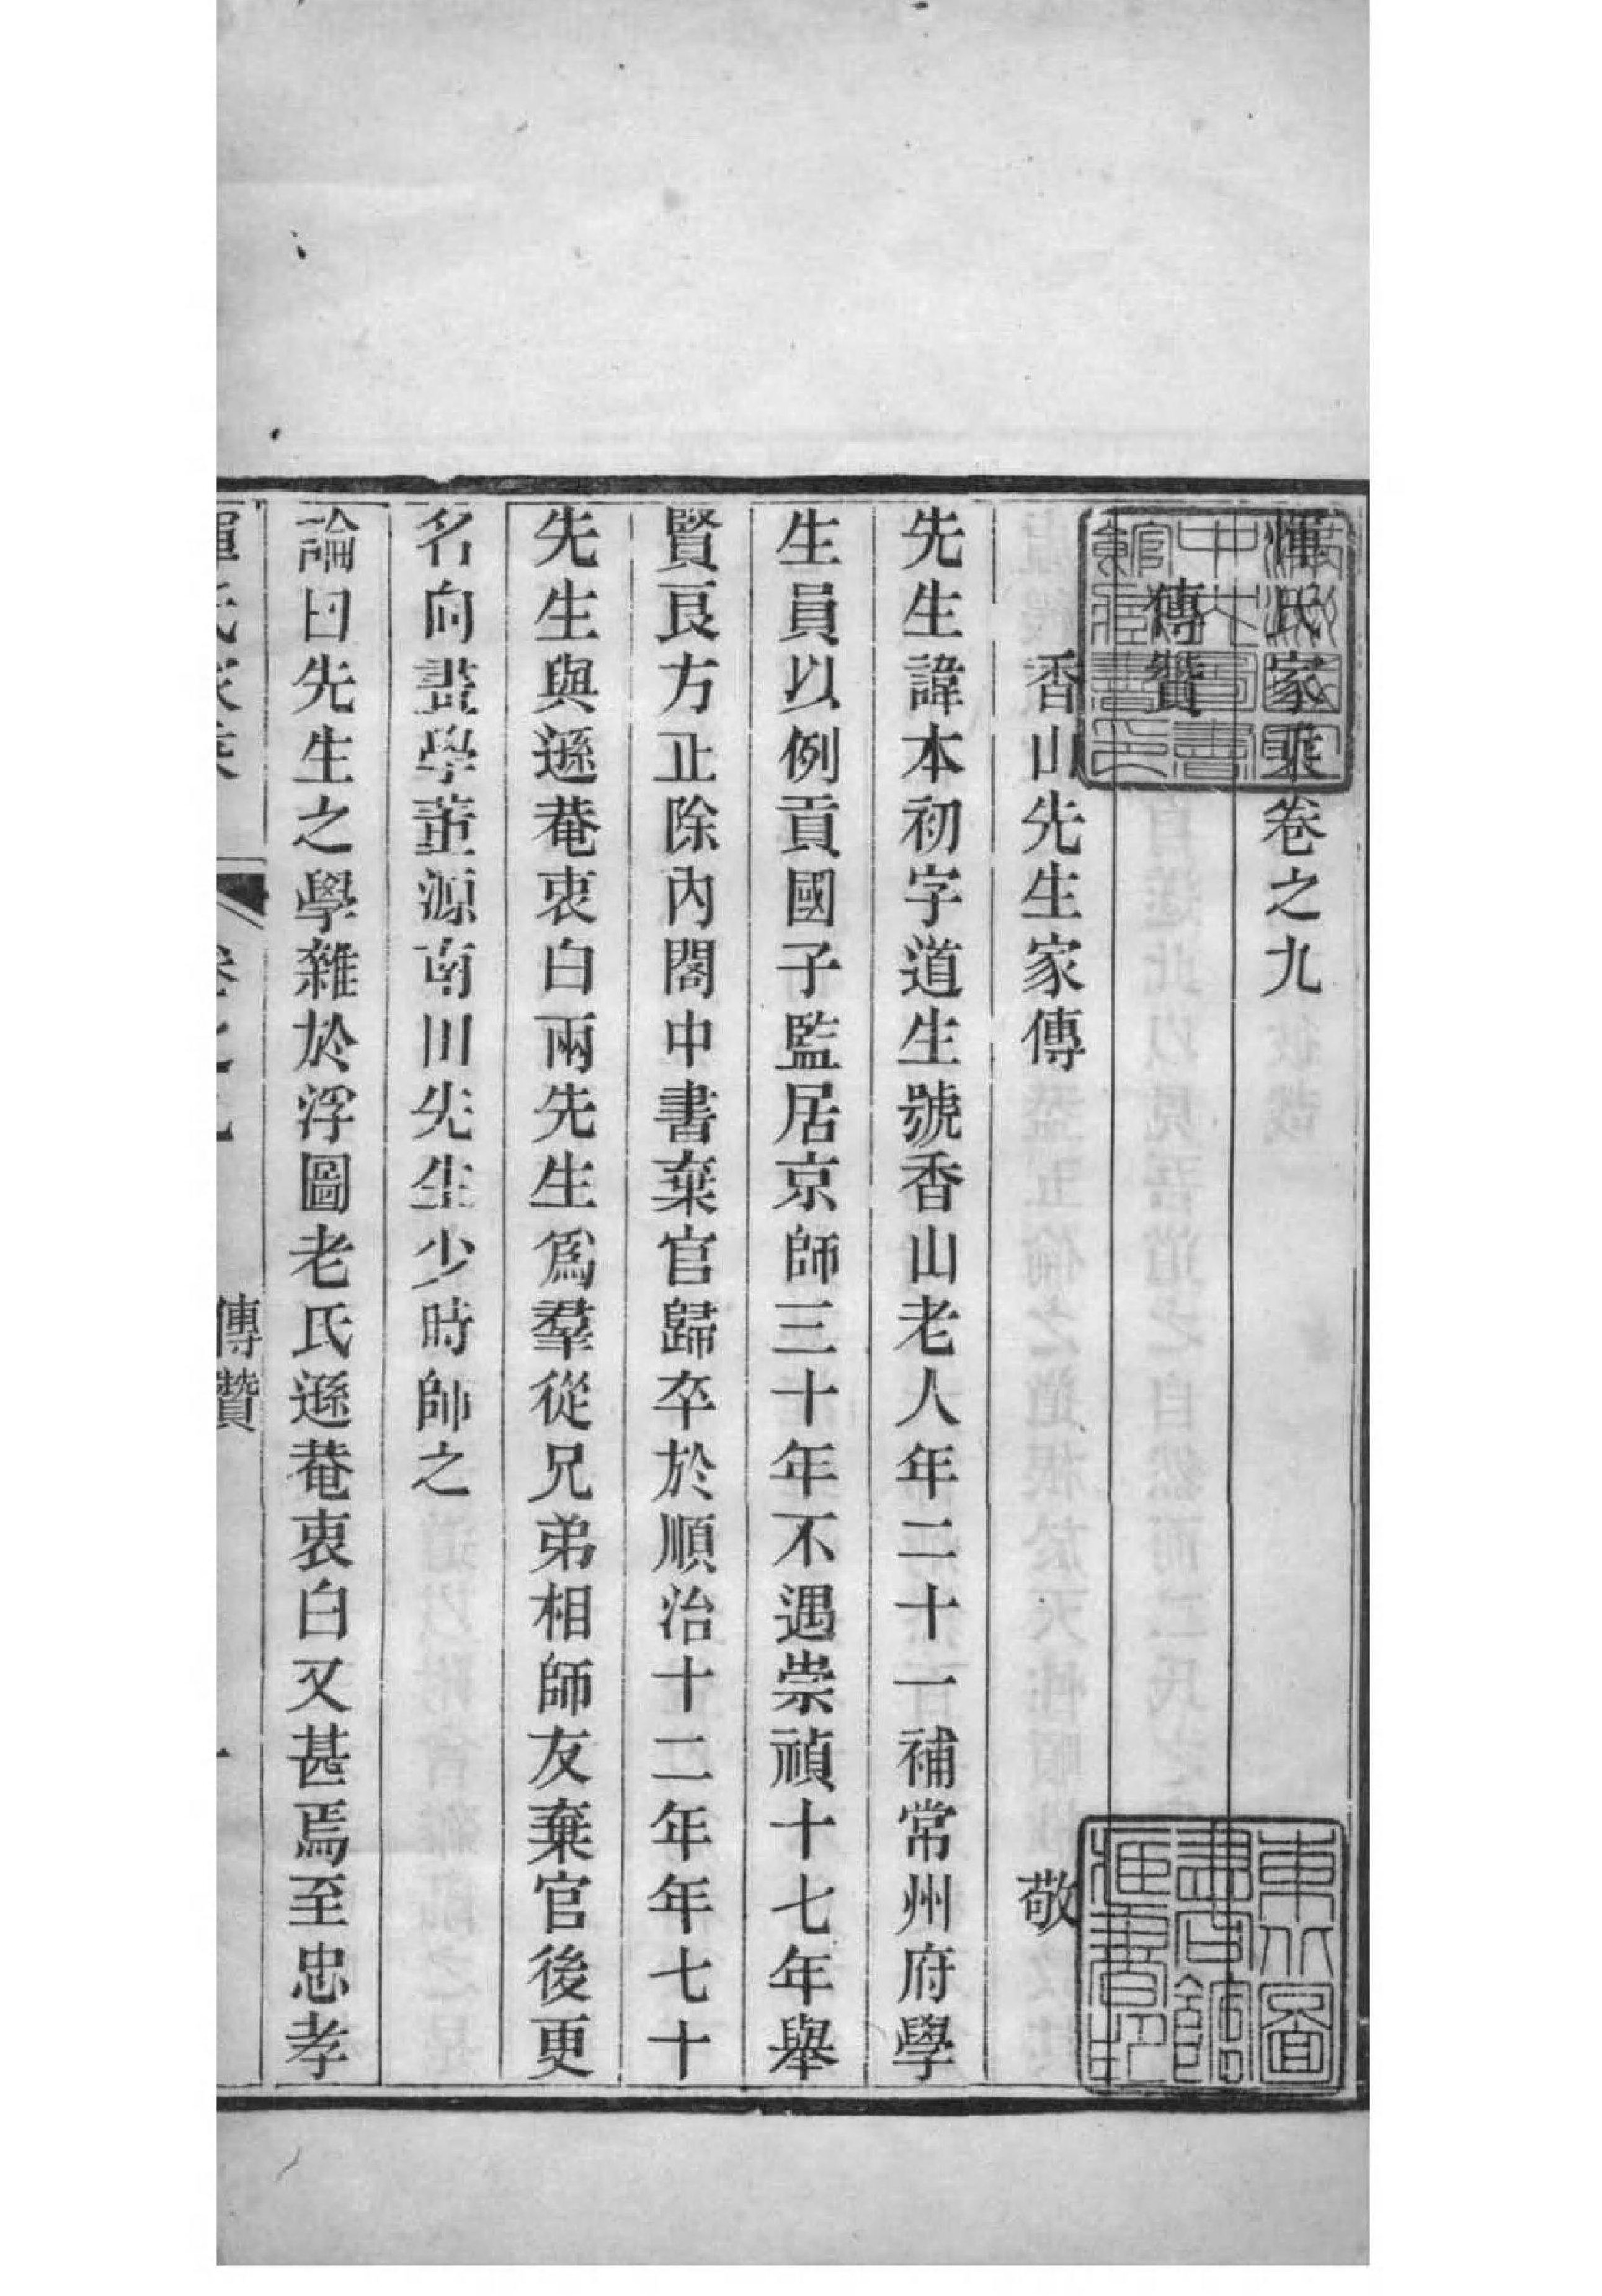 惲氏家乘卷之九
傳贊
香山先生家傳　敬
先生諱本初字道生號香山老人年二十一補常州府學
生員以例貢國子監居京師三十年不遇崇禎十七年舉
賢良方正除內閣中書棄官歸卒於順治十二年年七十
先生與遜菴衷白兩先生爲羣從兄弟相師友棄官後更
名向畫學董源南田先生少時師之
論曰先生之學雜於浮圖老氏遜菴衷白又甚焉至忠孝
惲氏家乘　卷之九　傳贊　一